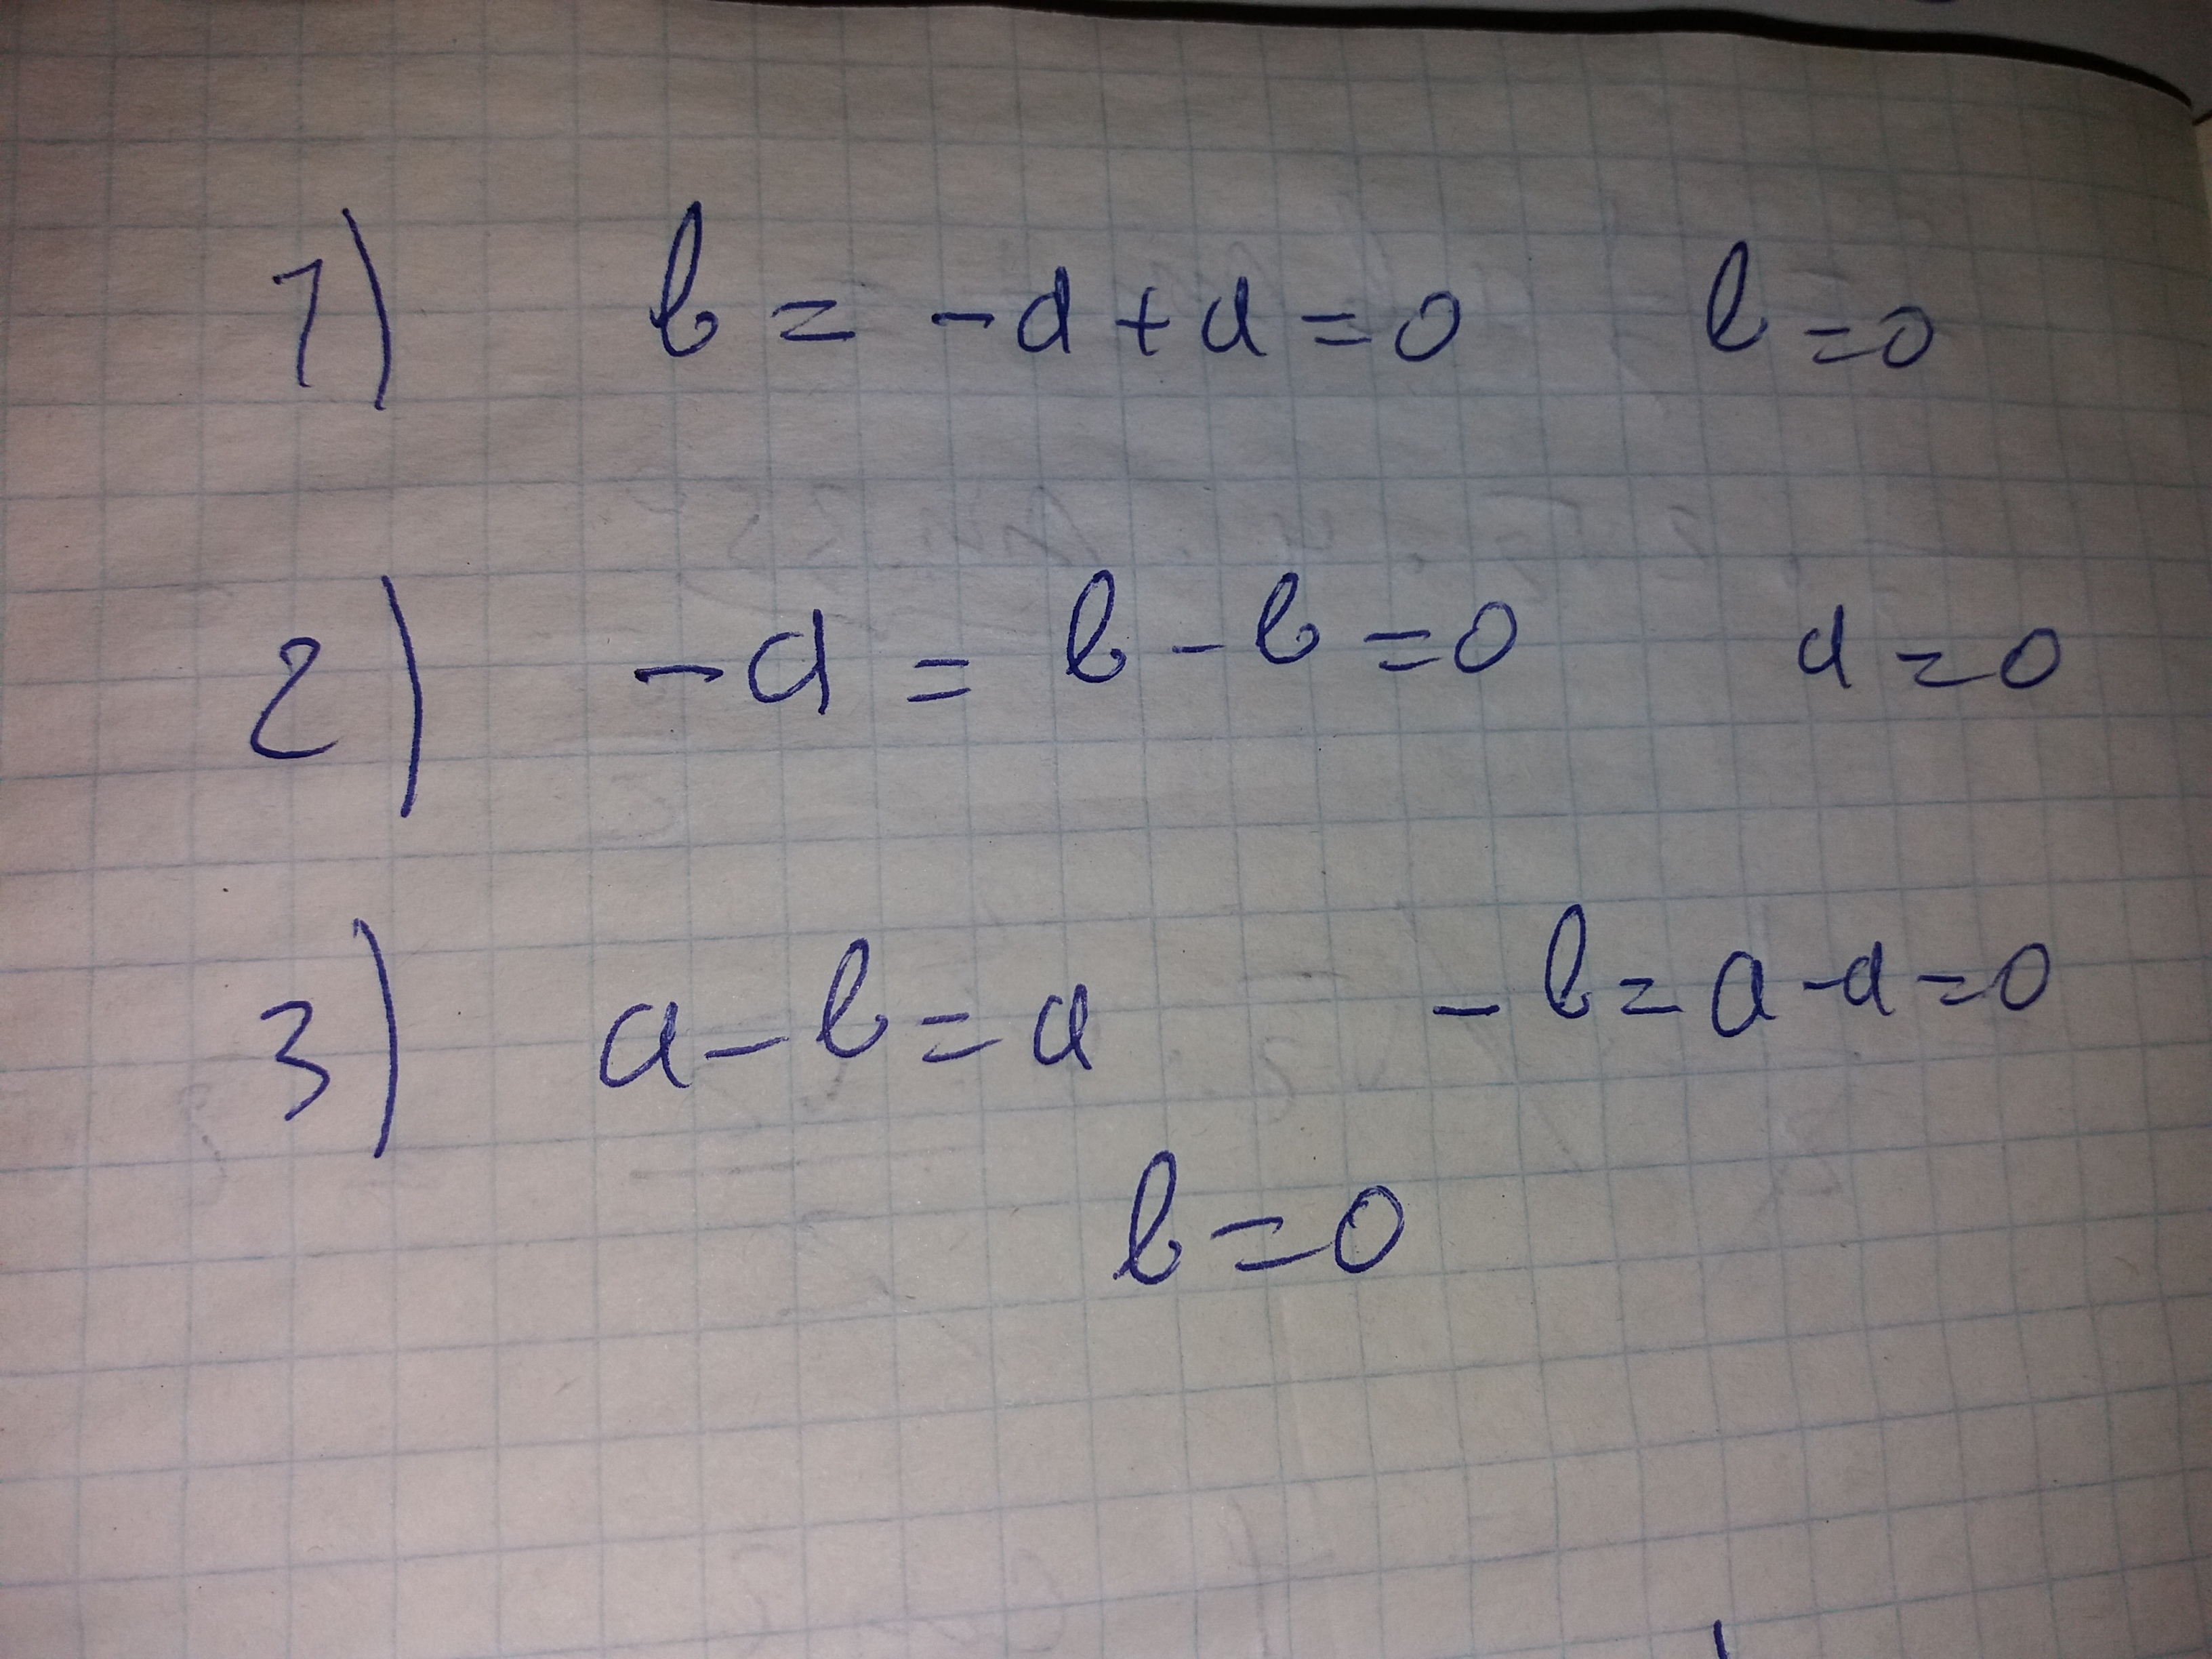 1) b = -a + a = 0 b = 0
2) -a = b - b = 0 a = 0
3) a - b = a -b = a - a = 0
b = 0